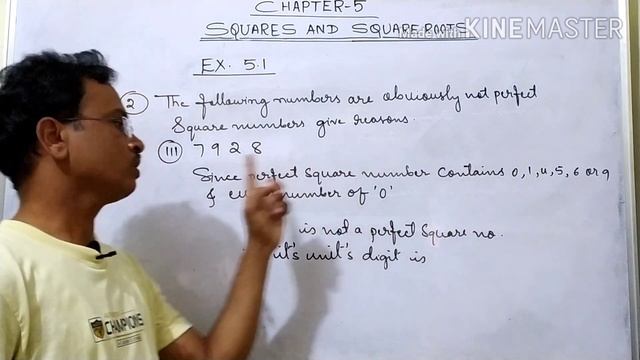 CHAPTER-5
SQUARES AND SQUARE ROOTS
Made with KINEMASTER
EX. 5.1
2 The following numbers are obviously not perfect
square numbers give reasons.
(III) 7928
Since perfect square number contains 0, 1, 4, 5, 6 or 9
& number of '0'
is not a perfect square no.
it's unit's digit is
CHAMPIONS